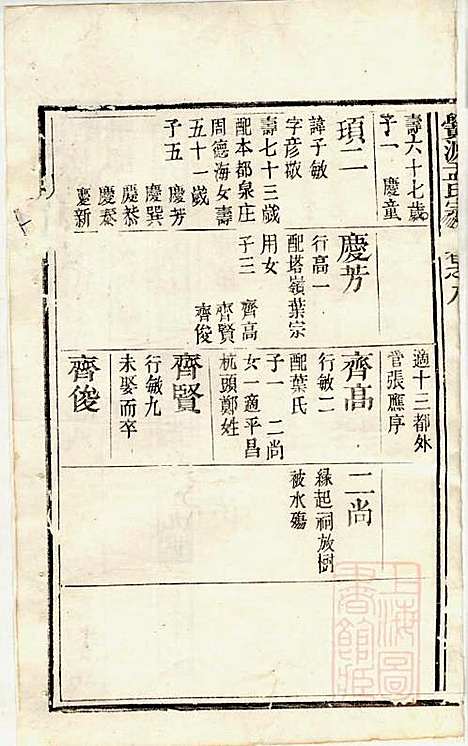 壽六十七歲
子一 慶童
頊二
諱子敏
字彥敬
壽七十三歲
配本都泉庄
周德海女壽
五十一歲
子五 慶芳
慶巽
慶恭
慶泰
慶新
慶芳
行高一
配塔嶺葉宗
用女
子三 齊高
齊賢
齊俊
適十三都外
嘗張應序
齊高
行敏二
配葉氏
子一 二尚
女一適平昌
杭頭鄭姓
齊賢
行敏九
未娶而卒
齊俊
二尚
緣起祠放樹
被水殤
上海圖
書館藏